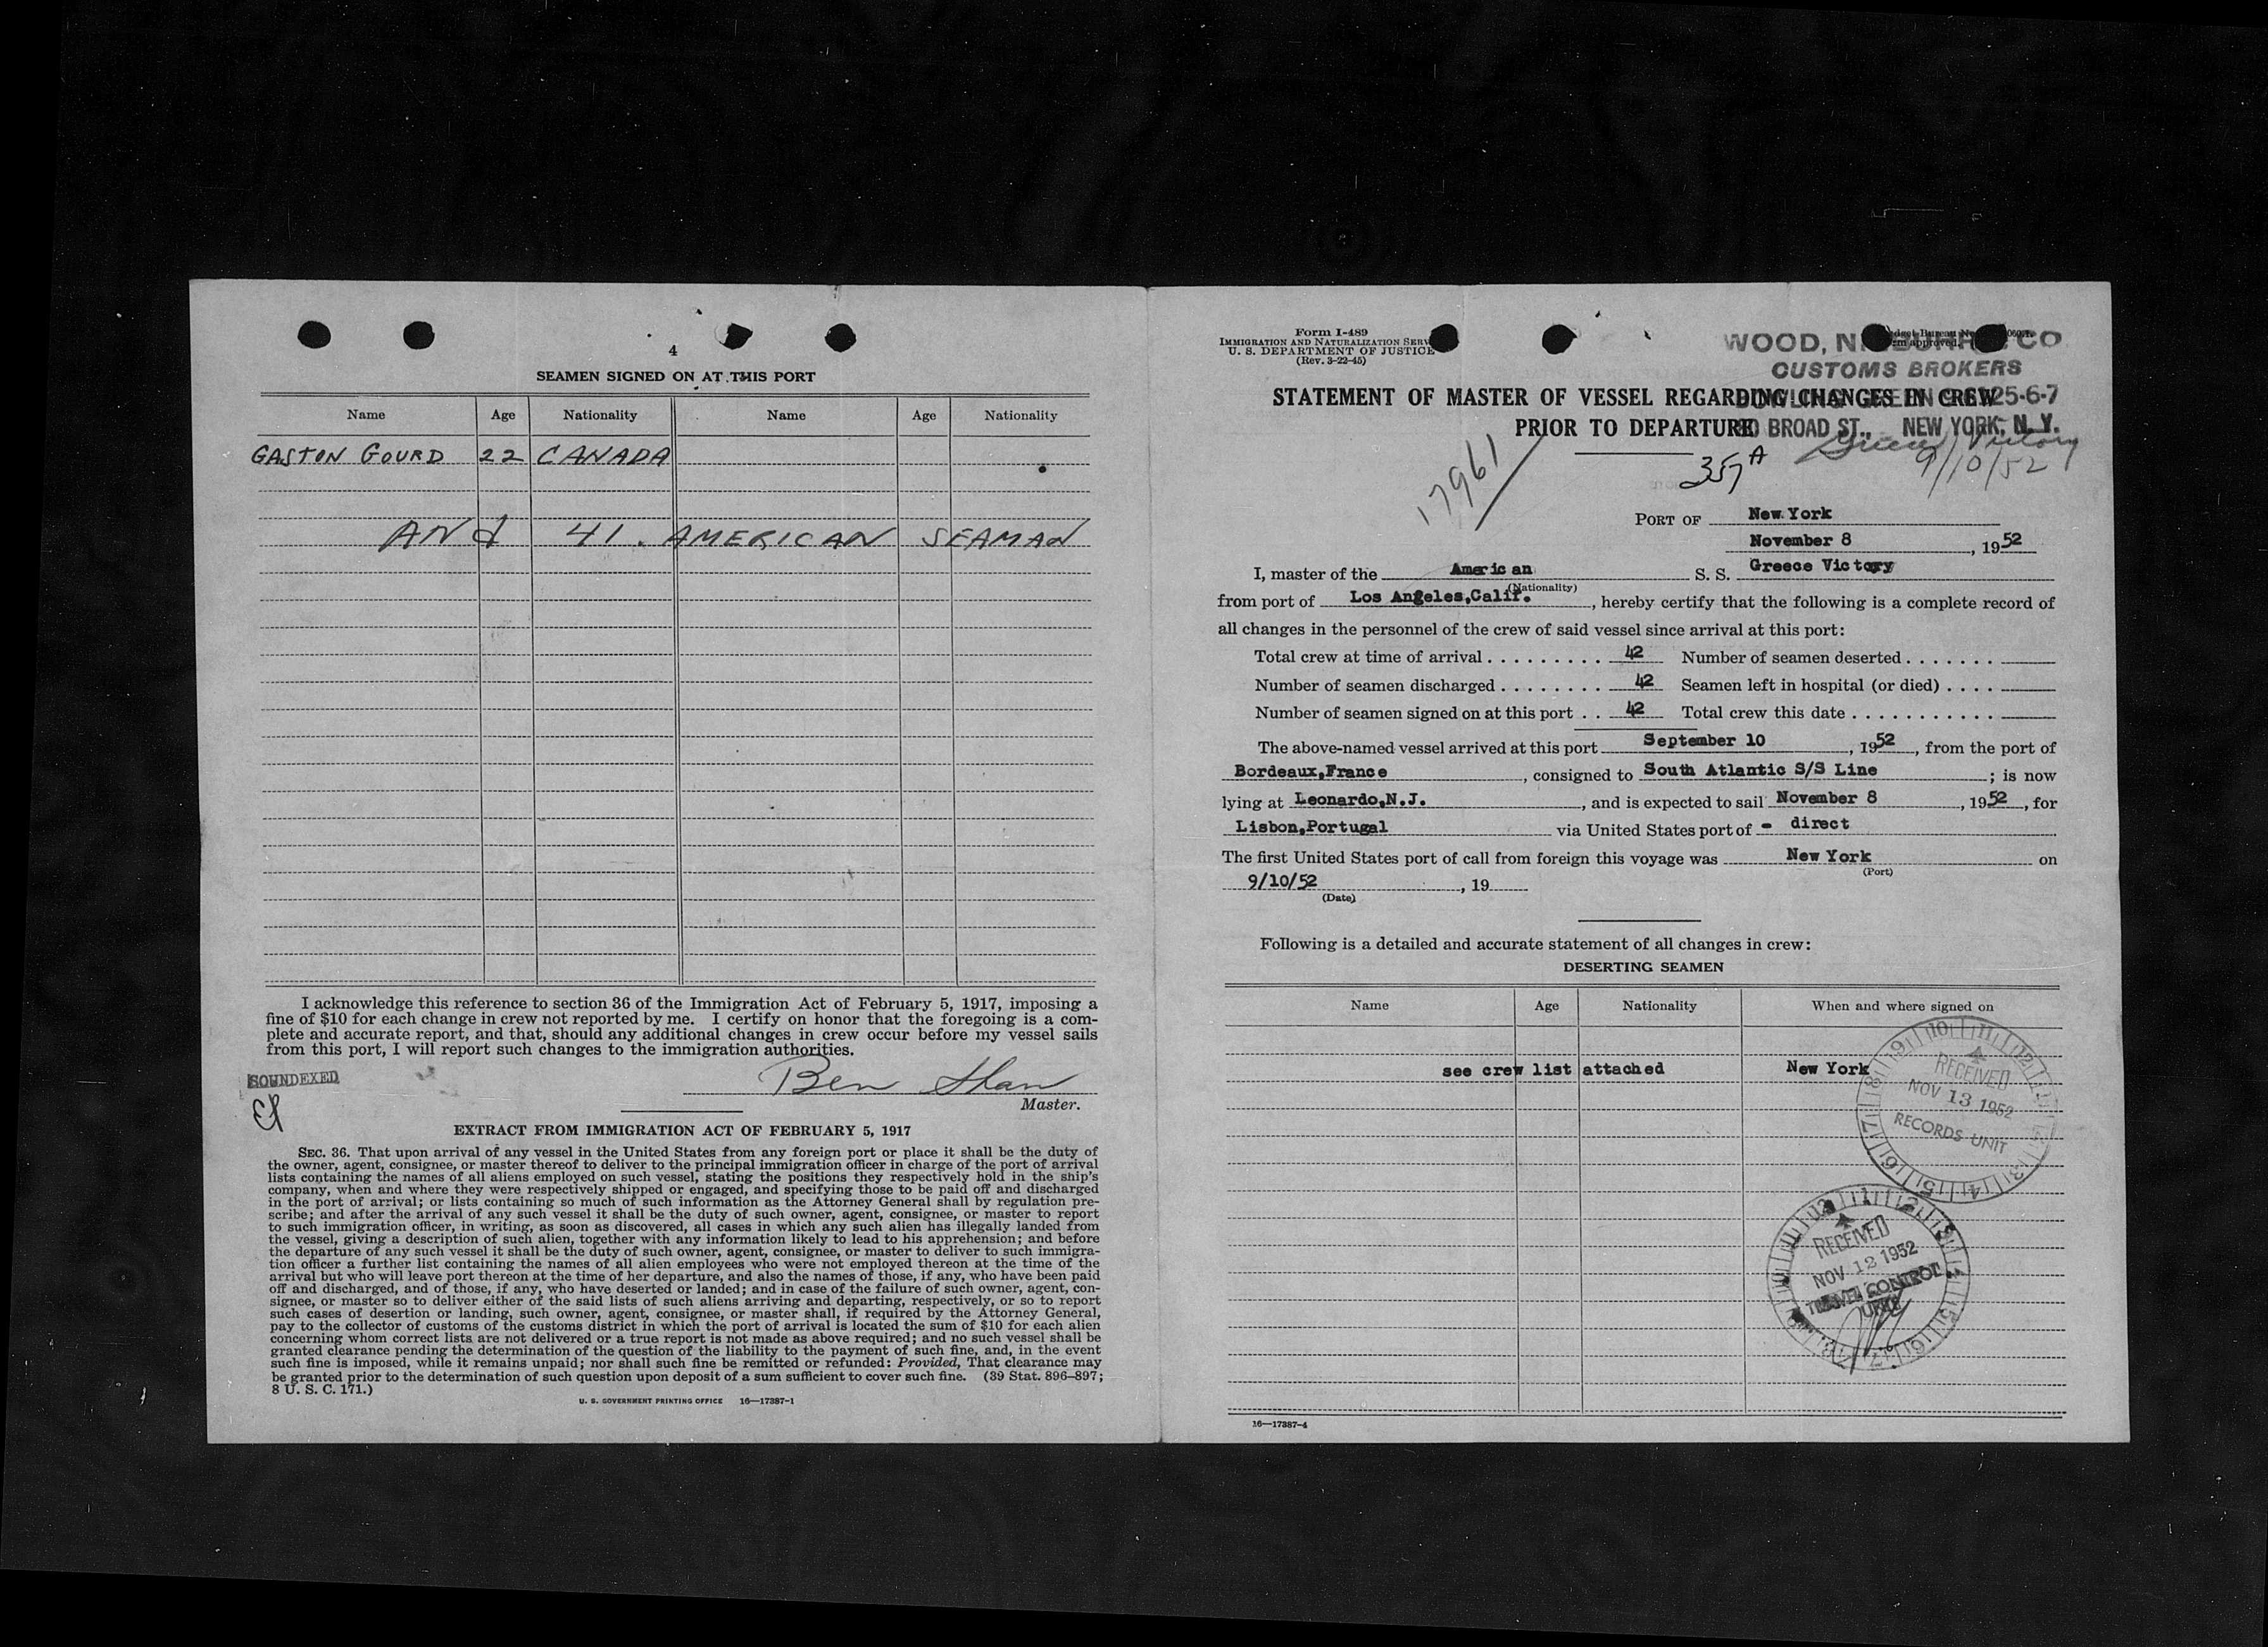 4
SEAMEN SIGNED ON AT THIS PORT
Name Age Nationality Name Age Nationality
GASTON GOURD 22 CANADA
AND 41. AMERICAN SEAMAN
I acknowledge this reference to section 36 of the Immigration Act of February 5, 1917, imposing a
fine of $10 for each change in crew not reported by me. I certify on honor that the foregoing is a com-
plete and accurate report, and that, should any additional changes in crew occur before my vessel sails
from this port, I will report such changes to the immigration authorities.
SOUNDEXED
Ben Shaw
Master.
EXTRACT FROM IMMIGRATION ACT OF FEBRUARY 5, 1917
SEC. 36. That upon arrival of any vessel in the United States from any foreign port or place it shall be the duty of
the owner, agent, consignee, or master thereof to deliver to the principal immigration officer in charge of the port of arrival
lists containing the names of all aliens employed on such vessel, stating the positions they respectively hold in the ship's
company, when and where they were respectively shipped or engaged, and specifying those to be paid off and discharged
in the port of arrival; or lists containing so much of such information as the Attorney General shall by regulation pre-
scribe; and after the arrival of any such vessel it shall be the duty of such owner, agent, consignee, or master to report
to such immigration officer, in writing, as soon as discovered, all cases in which any such alien has illegally landed from
the vessel, giving a description of such alien, together with any information likely to lead to his apprehension; and before
the departure of any such vessel it shall be the duty of such owner, agent, consignee, or master to deliver to such immigra-
tion officer a further list containing the names of all alien employees who were not employed thereon at the time of the
arrival but who will leave port thereon at the time of her departure, and also the names of those, if any, who have been paid
off and discharged, and of those, if any, who have deserted or landed; and in case of the failure of such owner, agent, con-
signee, or master so to deliver either of the said lists of such aliens arriving and departing, respectively, or so to report
such cases of desertion or landing, such owner, agent, consignee, or master shall, if required by the Attorney General,
pay to the collector of customs of the customs district in which the port of arrival is located the sum of $10 for each alien
concerning whom correct lists are not delivered or a true report is not made as above required; and no such vessel shall be
granted clearance pending the determination of the question of the liability to the payment of such fine, and, in the event
such fine is imposed, while it remains unpaid; nor shall such fine be remitted or refunded: Provided, That clearance may
be granted prior to the determination of such question upon deposit of a sum sufficient to cover such fine. (39 Stat. 896–897;
8 U. S. C. 171.)
U. S. GOVERNMENT PRINTING OFFICE 16—17387-1
Form I-489
IMMIGRATION AND NATURALIZATION SERV
U. S. DEPARTMENT OF JUSTICE
(Rev. 3-22-45)
WOOD, CO
CUSTOMS BROKERS
25-6-7
BROAD ST., NEW YORK, N. Y.
STATEMENT OF MASTER OF VESSEL REGARDING CHANGES IN CREW
PRIOR TO DEPARTURE
Greece Victory
9/10/52
17961
357 A
PORT OF New York
November 8, 1952
I, master of the American S. S. Greece Victory
(Nationality)
from port of Los Angeles,Calif., hereby certify that the following is a complete record of
all changes in the personnel of the crew of said vessel since arrival at this port:
Total crew at time of arrival . . . . . . . . . 42 Number of seamen deserted . . . . . . .
Number of seamen discharged . . . . . . . . 42 Seamen left in hospital (or died) . . . .
Number of seamen signed on at this port . . 42 Total crew this date . . . . . . . . . . .
The above-named vessel arrived at this port September 10, 1952, from the port of
Bordeaux,France, consigned to South Atlantic S/S Line; is now
lying at Leonardo,N.J., and is expected to sail November 8, 1952, for
Lisbon,Portugal via United States port of - direct
The first United States port of call from foreign this voyage was New York on
(Port)
9/10/52, 19
(Date)
Following is a detailed and accurate statement of all changes in crew:
DESERTING SEAMEN
Name Age Nationality When and where signed on
see crew list attached New York
RECEIVED
NOV 13 1952
RECORDS UNIT
RECEIVED
NOV 12 1952
TRAVEL CONTROL
UNIT
16—17387-4